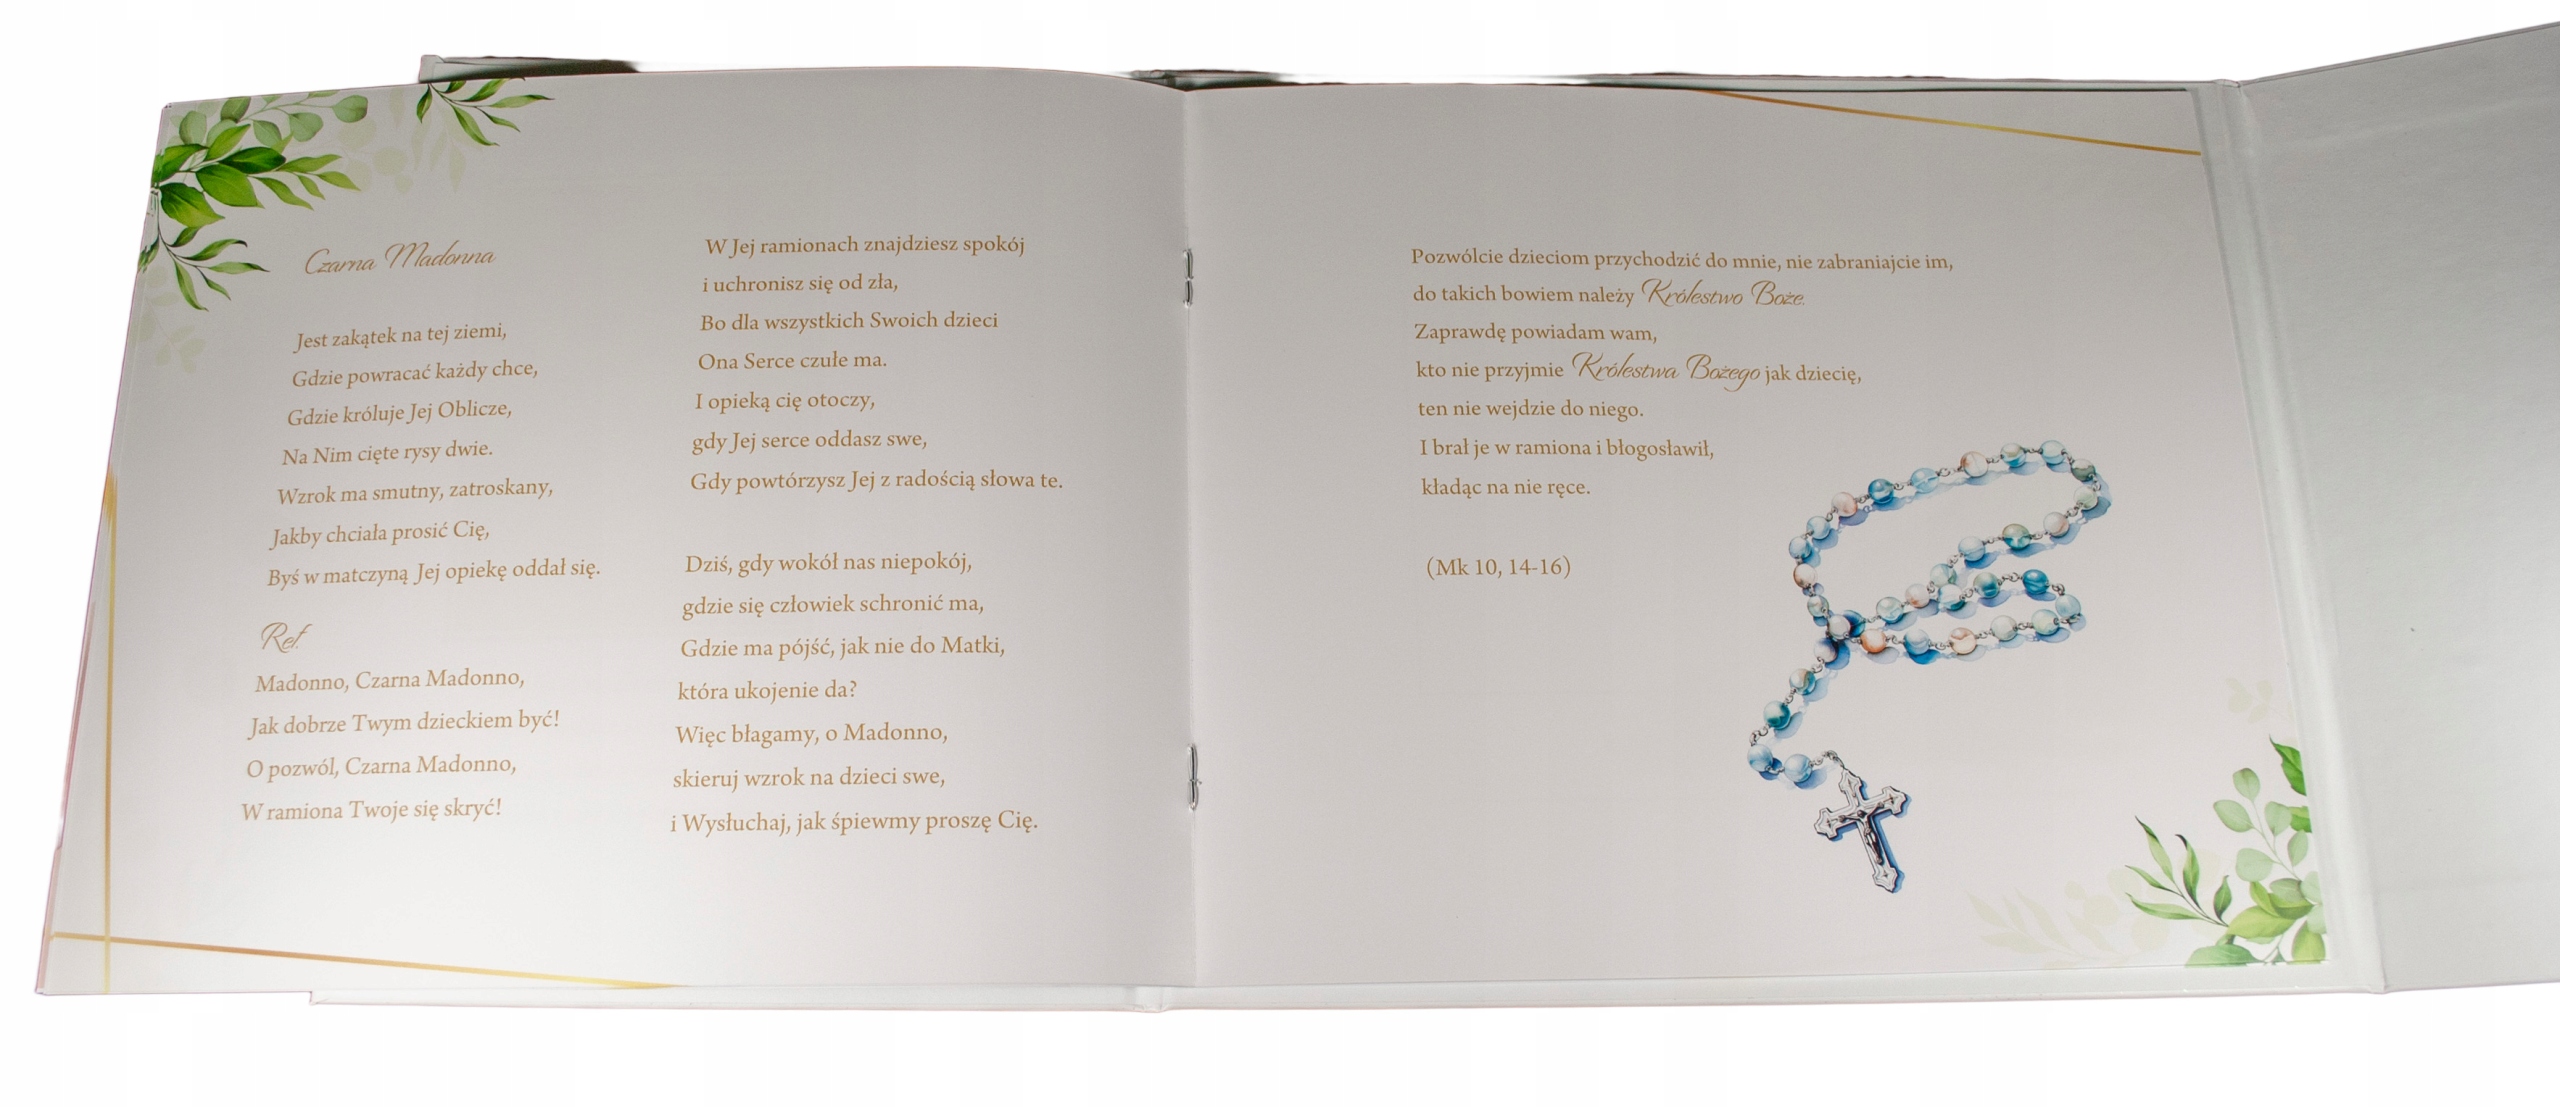 Czarna Madonna
Jest zakątek na tej ziemi,
Gdzie powracać każdy chce,
Gdzie króluje Jej Oblicze,
Na Nim cięte rysy dwie.
Wzrok ma smutny, zatroskany,
Jakby chciała prosić Cię,
Byś w matczyną Jej opiekę oddał się.
Ref.
Madonno, Czarna Madonno,
Jak dobrze Twym dzieckiem być!
O pozwól, Czarna Madonno,
W ramiona Twoje się skryć!
W Jej ramionach znajdziesz spokój
i uchronisz się od zła,
Bo dla wszystkich Swoich dzieci
Ona Serce czułe ma.
I opieką cię otoczy,
gdy Jej serce oddasz swe,
Gdy powtórzysz Jej z radością słowa te.
Dziś, gdy wokół nas niepokój,
gdzie się człowiek schronić ma,
Gdzie ma pójść, jak nie do Matki,
która ukojenie da?
Więc błagamy, o Madonno,
skieruj wzrok na dzieci swe,
i Wysłuchaj, jak śpiewmy proszę Cię.
Pozwólcie dzieciom przychodzić do mnie, nie zabraniajcie im,
do takich bowiem należy Królestwo Boże.
Zaprawdę powiadam wam,
kto nie przyjmie Królestwa Bożego jak dziecię,
ten nie wejdzie do niego.
I brał je w ramiona i błogosławił,
kładąc na nie ręce.
(Mk 10, 14-16)